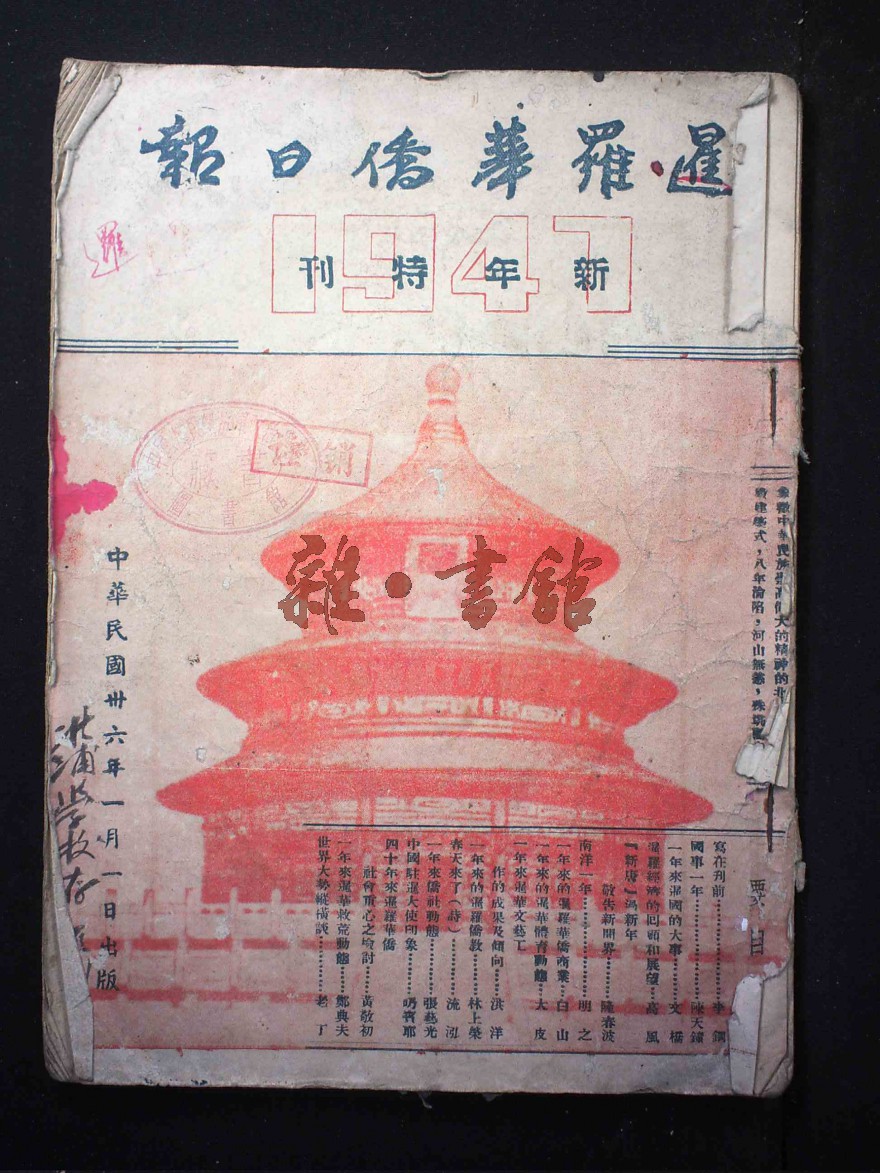 暹羅華僑日報
1947
新年特刊
象徵中華民族崇高偉大的精神的北
構建築式，八年淪陷，河山無恙，殊堪
雜·書館
註銷
藏書
中華民國卅六年一月一日出版
要目
寫在刊前…………李鐵
國事一年…………陳天鐸
一年來暹國的大事……文橋
暹羅經濟的回顧和展望……高風
『新唐』過新年
敬告新聞界……陳春波
南洋一年…………明之
一年來的暹羅華僑商業……白山
一年來的暹華體育動態……大皮
一年來暹華文藝工
作的成果及傾向……洪洋
一年來的暹羅僑教……林上榮
春天來了(詩)……流泓
一年來僑社動態……張藝光
中國駐暹大使印象……呥賓耶
四十年來暹羅華僑
社會重心之檢討……黃敬初
一年來暹華救荒動態……鄭典夫
世界大勢縱橫談……老丁